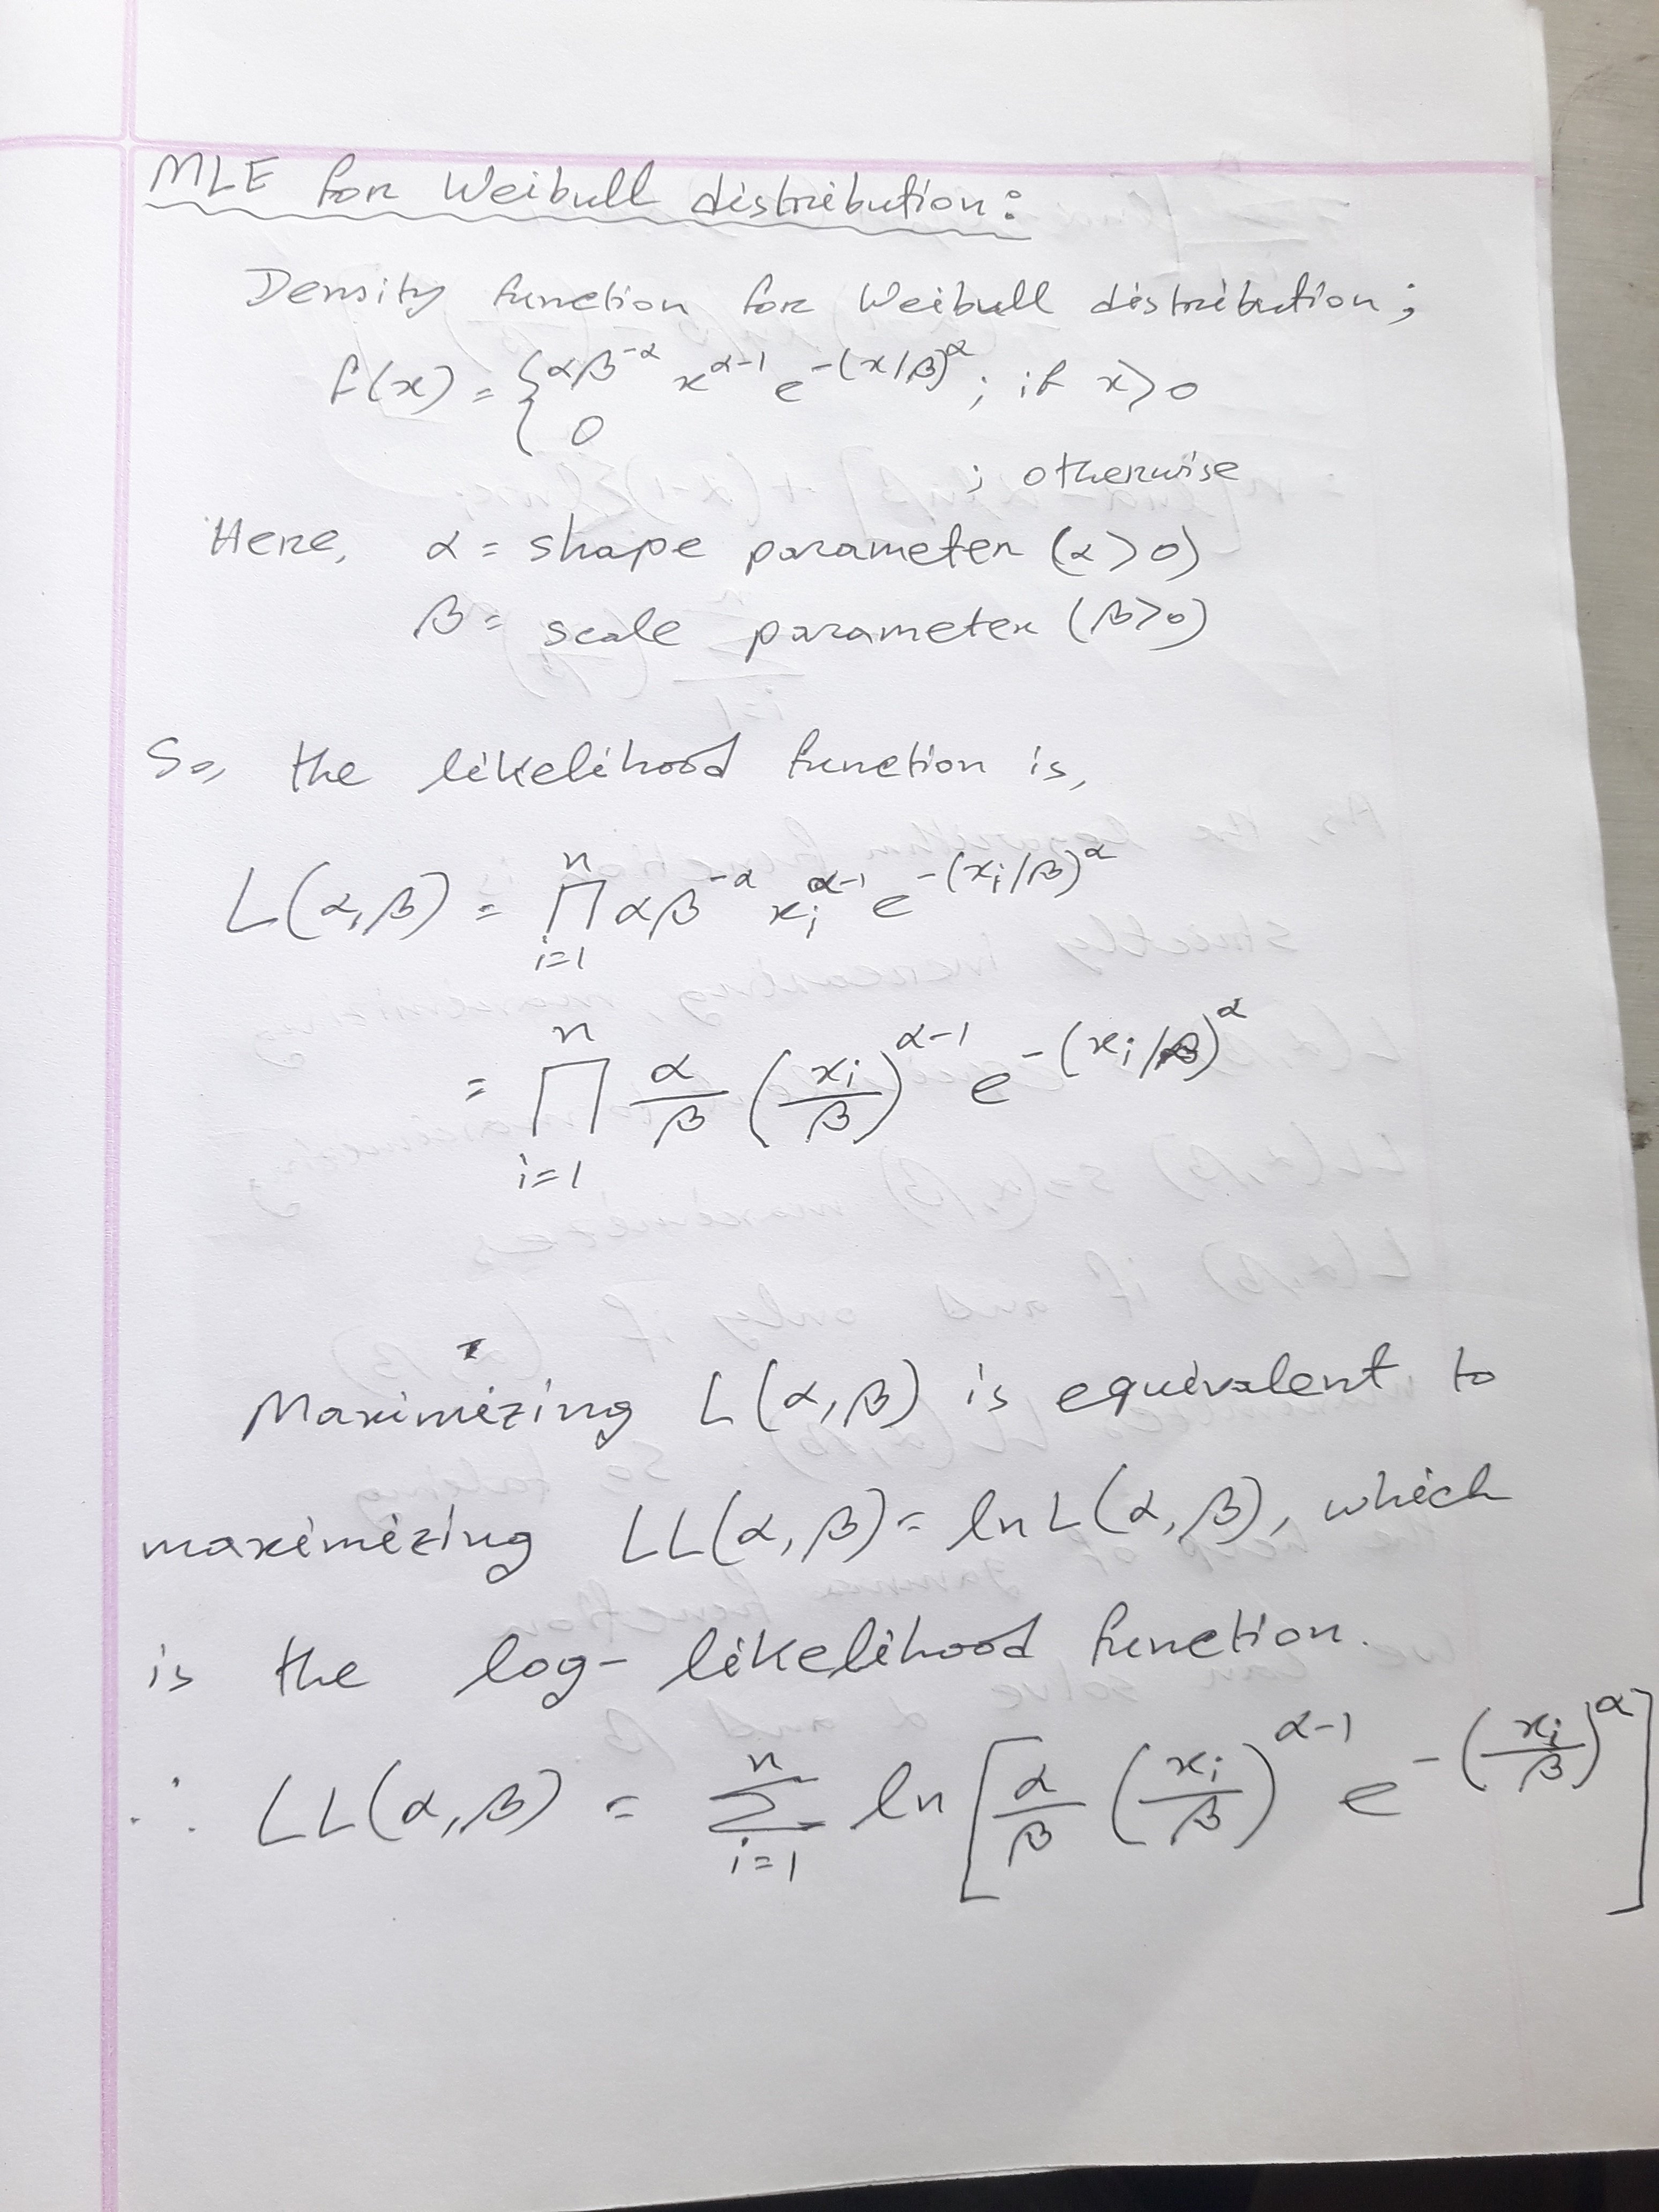 MLE for Weibull distribution:
Density function for Weibull distribution;
f(x) = { αβ^-α x^α-1 e^-(x/β)^α ; if x>0
0
; otherwise
Here, α = shape parameter (α>0)
β = scale parameter (β>0)
So, the likelihood function is,
L(α,β) = ∏_{i=1}^{n} αβ^-α x_i^α-1 e^-(x_i/β)^α
= ∏_{i=1}^{n} α/β (x_i/β)^α-1 e^-(x_i/β)^α
Maximizing L(α,β) is equivalent to
maximizing LL(α,β) = ln L(α,β), which
is the log-likelihood function.
∴ LL(α,β) = ∑_{i=1}^{n} ln [α/β (x_i/β)^α-1 e^-(x_i/β)^α]